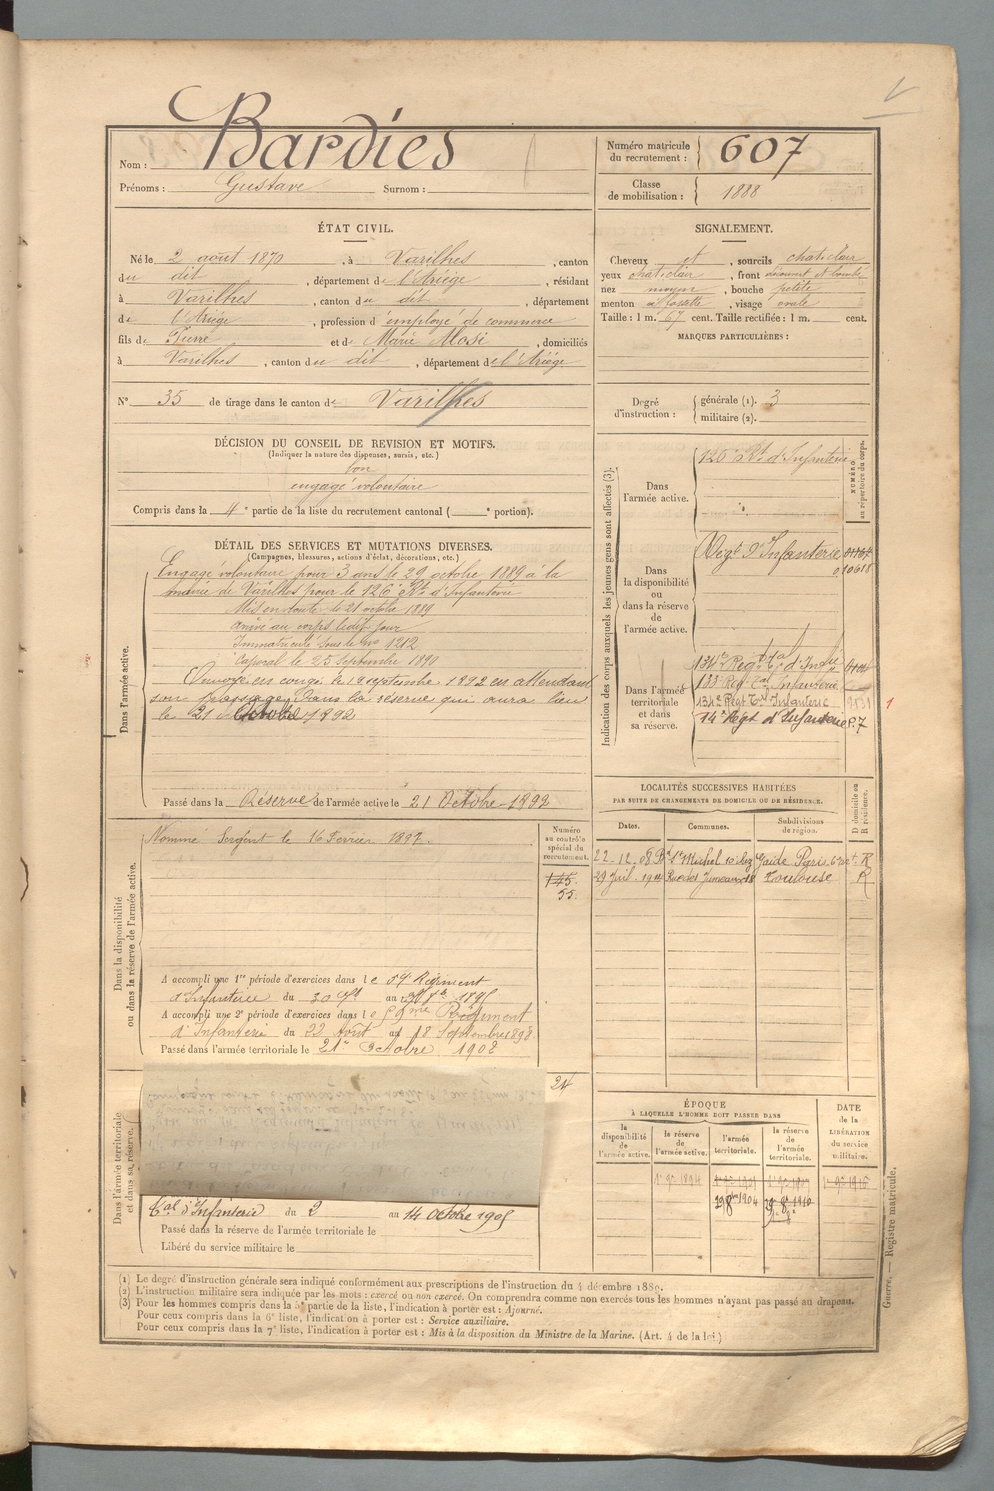 Nom : Bardies
Prénoms : Gustave Surnom :
Numéro matricule du recrutement : 607
Classe de mobilisation : 1888
ÉTAT CIVIL.
Né le 2 août 1870, à Varilhes, canton
du dit, département de l'Ariège, résidant
à Varilhes, canton du dit, département
de l'Ariège, profession d'employé de commerce
fils de Pierre et de Marie, domiciliés
à Varilhes, canton du dit, département de l'Ariège
N° 35 de tirage dans le canton de Varilhes
SIGNALEMENT.
Cheveux et, sourcils chat. clair
yeux chat. clair, front découvert et bombé
nez moyen, bouche petite
menton à fossette, visage ovale
Taille : 1 m. 67 cent. Taille rectifiée : 1 m. cent.
MARQUES PARTICULIÈRES :
Degré d'instruction : générale (1). 3
militaire (2).
DÉCISION DU CONSEIL DE REVISION ET MOTIFS.
(Indiquer la nature des dispenses, sursis, etc.)
bon
engagé volontaire
Compris dans la 4e partie de la liste du recrutement cantonal ( e portion).
DÉTAIL DES SERVICES ET MUTATIONS DIVERSES.
(Campagnes, blessures, actions d'éclat, décorations, etc.)
Dans l'armée active.
Engagé volontaire pour 3 ans le 29 octobre 1889 à la
mairie de Varilhes pour le 126e Rt d'Infanterie
Mis en route le 21 octobre 1889
Arrivé au corps ledit jour
Immatriculé sous le no 1212
Caporal le 25 Septembre 1890
Envoyé en congé le 19 septembre 1892 en attendant
son passage dans la réserve qui aura lieu
le 21 Octobre 1892
Passé dans la Réserve de l'armée active le 21 Octobre 1892
Indication des corps auxquels les jeunes gens sont affectés (3).
NUMÉRO au répertoire du corps.
Dans l'armée active.
126 Rt d'Infanterie
Dans la disponibilité ou dans la réserve de l'armée active.
Régt d'Infanterie
010618
Dans l'armée territoriale et dans sa réserve.
134e Régt Tal d'Infie
133e Régt Tal Infanterie
134e Régt Tal Infanterie
14e Régt d'Infanterie S. 7
1
LOCALITÉS SUCCESSIVES HABITÉES
PAR SUITE DE CHANGEMENTS DE DOMICILE OU DE RÉSIDENCE.
Dates. Communes. Subdivisions de région. D domicile ou R résidence.
22-12-08 Bd St Michel 10 R
29 Juil. 1911 Toulouse R
Dans la disponibilité ou dans la réserve de l'armée active.
Nommé Sergent le 16 Février 1897.
Numéro au contrôle spécial du recrutement.
145.
55.
A accompli une 1re période d'exercices dans le 59e Régiment
d'Infanterie du 30 au 1895
A accompli une 2e période d'exercices dans le 59me Régiment
d'Infanterie du 22 Août au 18 Septembre 1898.
Passé dans l'armée territoriale le 21 Octobre 1902
Dans l'armée territoriale et dans sa réserve.
24
Tal d'Infanterie du 2 au 14 Octobre 1905
Passé dans la réserve de l'armée territoriale le
Libéré du service militaire le
ÉPOQUE
À LAQUELLE L'HOMME DOIT PASSER DANS
la disponibilité de l'armée active. la réserve de l'armée active. l'armée territoriale. la réserve de l'armée territoriale.
DATE de la LIBÉRATION du service militaire.
(1) Le degré d'instruction générale sera indiqué conformément aux prescriptions de l'instruction du 4 décembre 1889.
(2) L'instruction militaire sera indiquée par les mots : exercé ou non exercé. On comprendra comme non exercés tous les hommes n'ayant pas passé au drapeau.
(3) Pour les hommes compris dans la 5e partie de la liste, l'indication à porter est : Ajourné.
Pour ceux compris dans la 6e liste, l'indication à porter est : Service auxiliaire.
Pour ceux compris dans la 7e liste, l'indication à porter est : Mis à la disposition du Ministre de la Marine. (Art. 4 de la loi.)
Guerre. — Registre matricule.